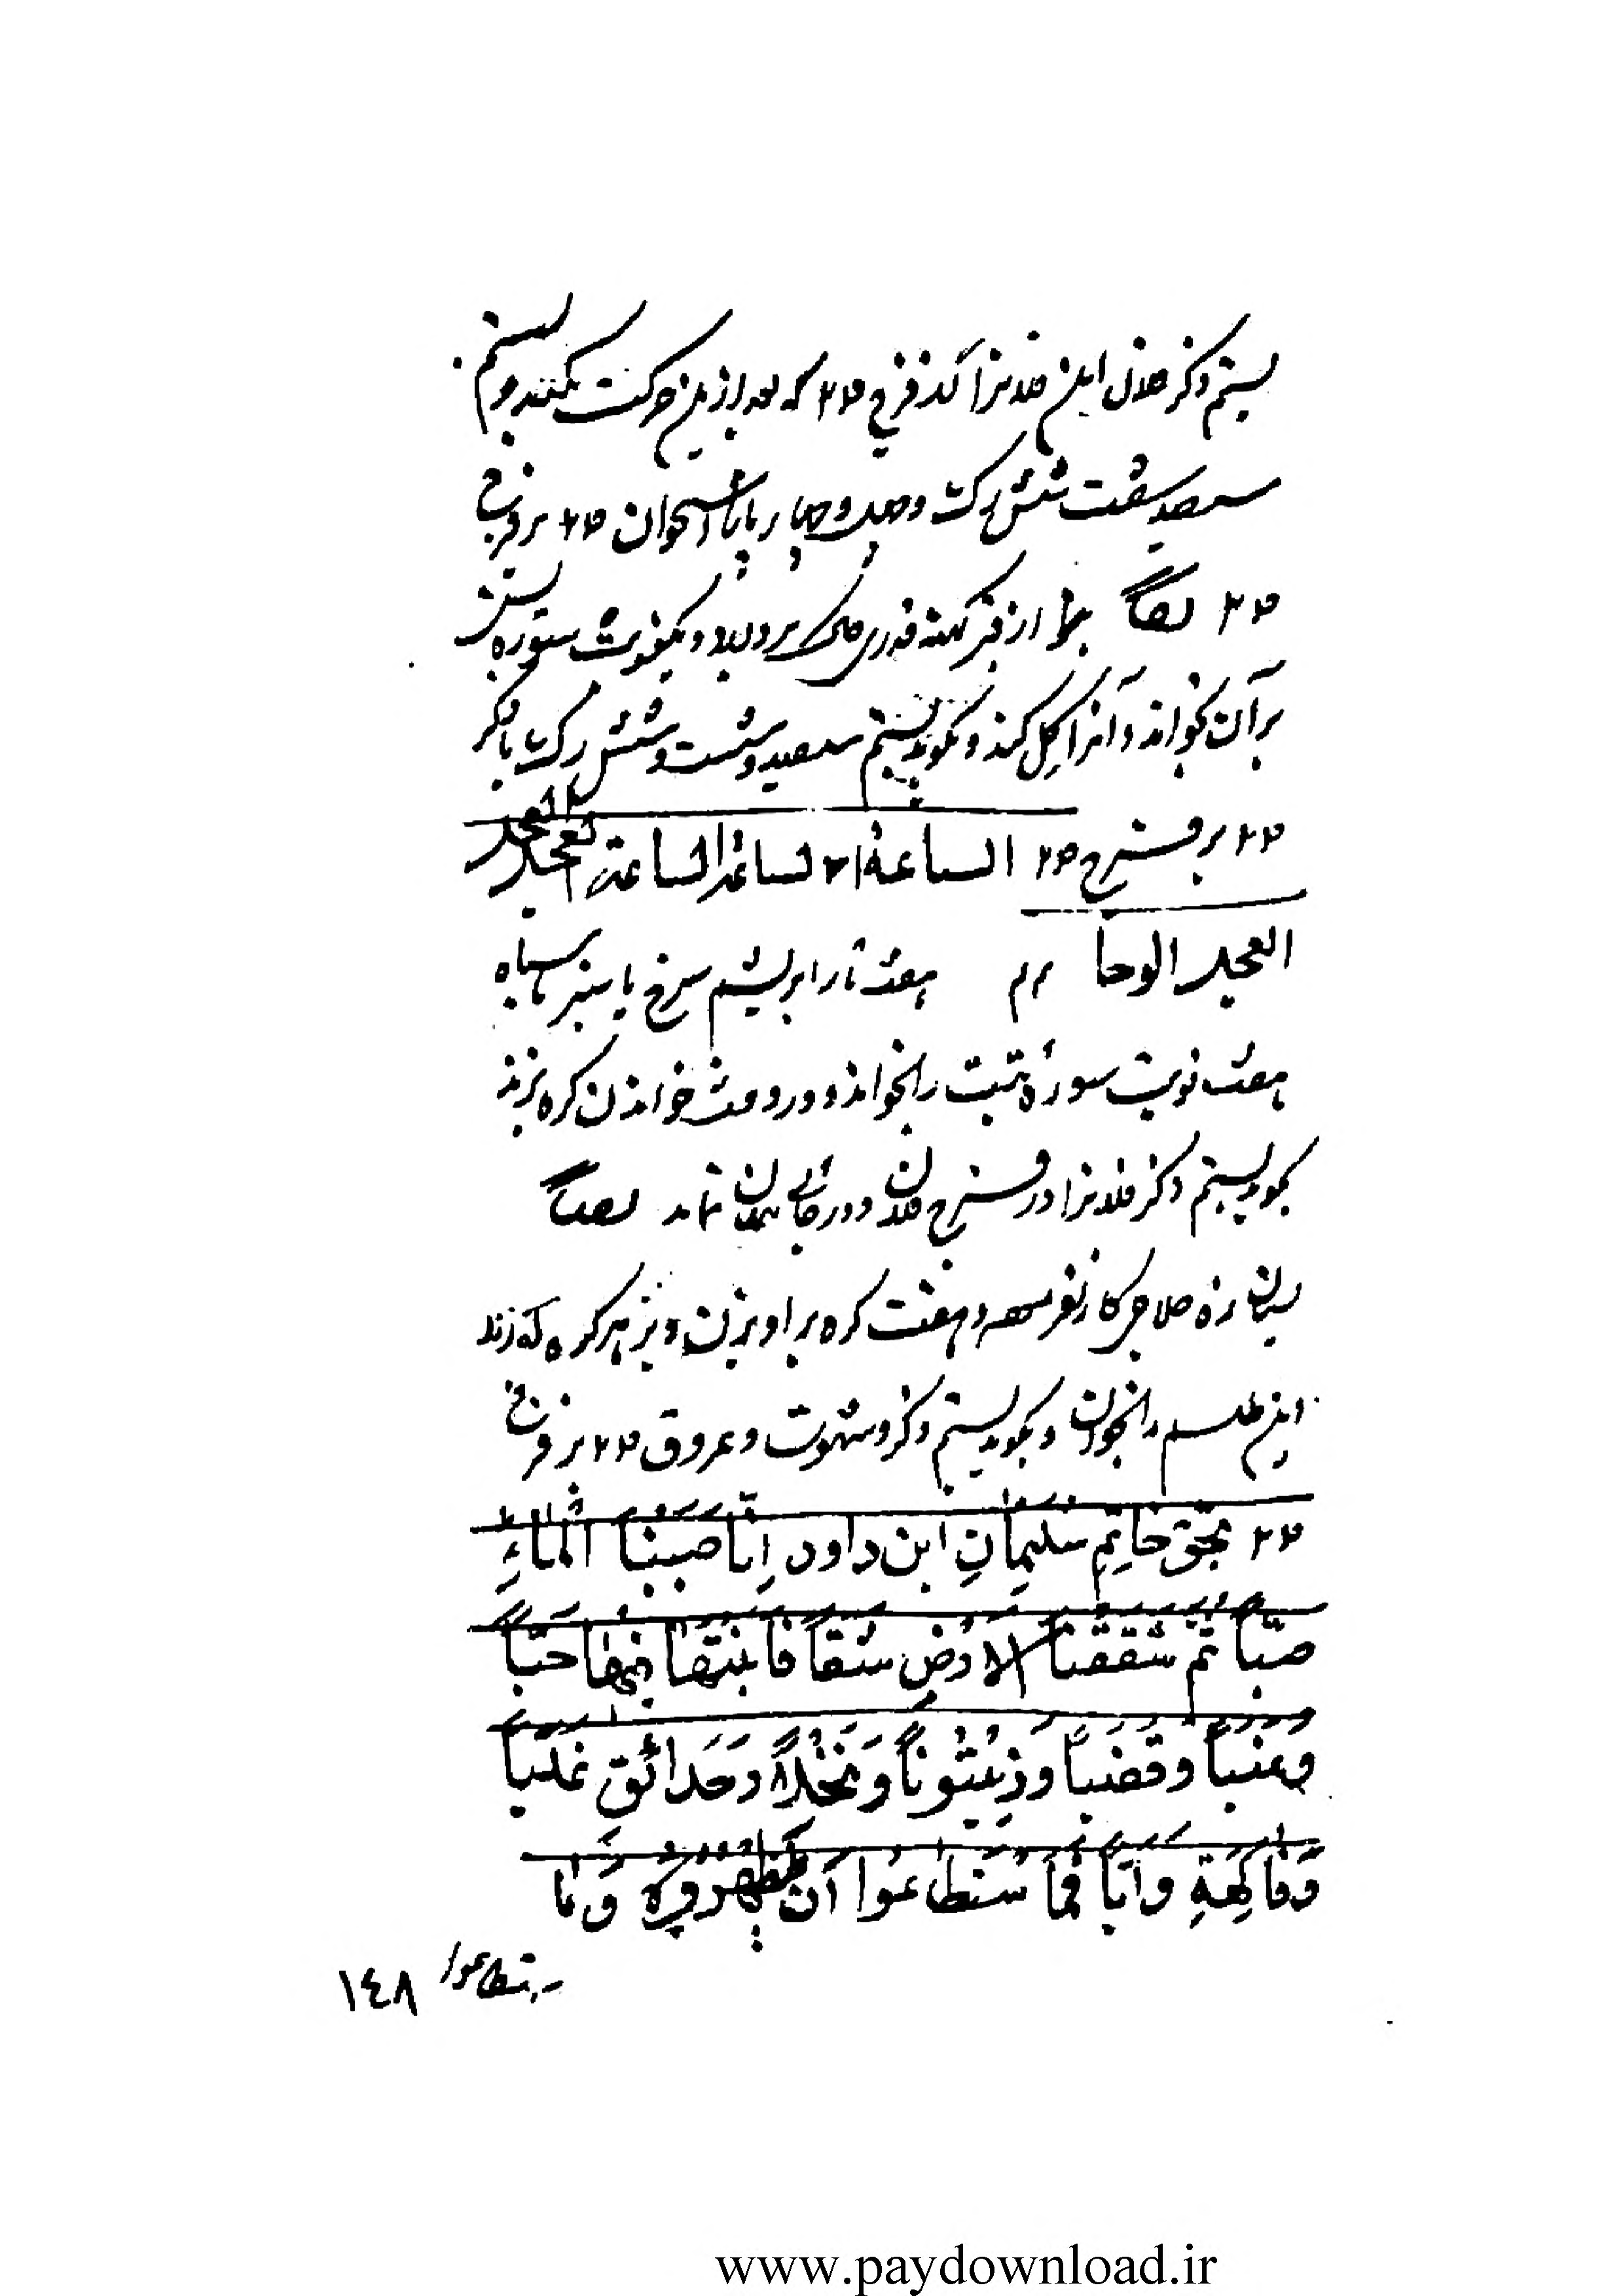 بستم ذکر فلان ابن فلانرا که فرج ۲۲۱۱ که بعد ازین حرکت نکند و بستم
سیصد شصت شش رک و صد و چهار پاره استخوان ۲۲۱۱ بر فرج
۲۲۱۱ ایضاً از قبر کهنه قدری خاک بردارد و یکنوبت سوره یس
بر آن بخواند و آنرا گل کند و بگوید بستم سیصد و شست و شش رک با ذکر
۲۲۱۱ بر فرج ۲۲۱۱ الساعة الساعة الساعة العجل
العجل الوحا ۲۱۲ هفت تار ابریشم سرخ یا سبز یا سیاه
هفت نوبت سورۀ تبت را بخواند و در وقت خواندن کره بزند
بگوید بستم ذکر فلانرا در فرج فلان و در جائی پنهان نماید ایضاً
بستان و هفت کره بر او بزن و بر هر کره که زند
این طلسم را بخوان و بگوید بستم ذکر و شهوت و عروق ۲۲۱۱ بر فرج
۲۲۱۱ بحق خاتِمِ سُلَیمانِ ابن داود اِنّا صَبَبْنَا الْمٰاءِ
صَبّاً ثُمَّ شَقَقْنَا الْاَرْضِ شَقّاً فَاَنْبَتْهٰا فیهٰا حَبّاً
وَعِنَباً وَقَضْباً وَزَیْتُوناً وَنَخْلاً وَحَدائِقِ غُلْباً
وَفٰاکِهَةِ وَاَبّاً فَمَا سْتَطاعُوا اَنْ یَظْهَرُوهُ وَمٰا
ستطاعوا
١٤٨
www.paydownload.ir